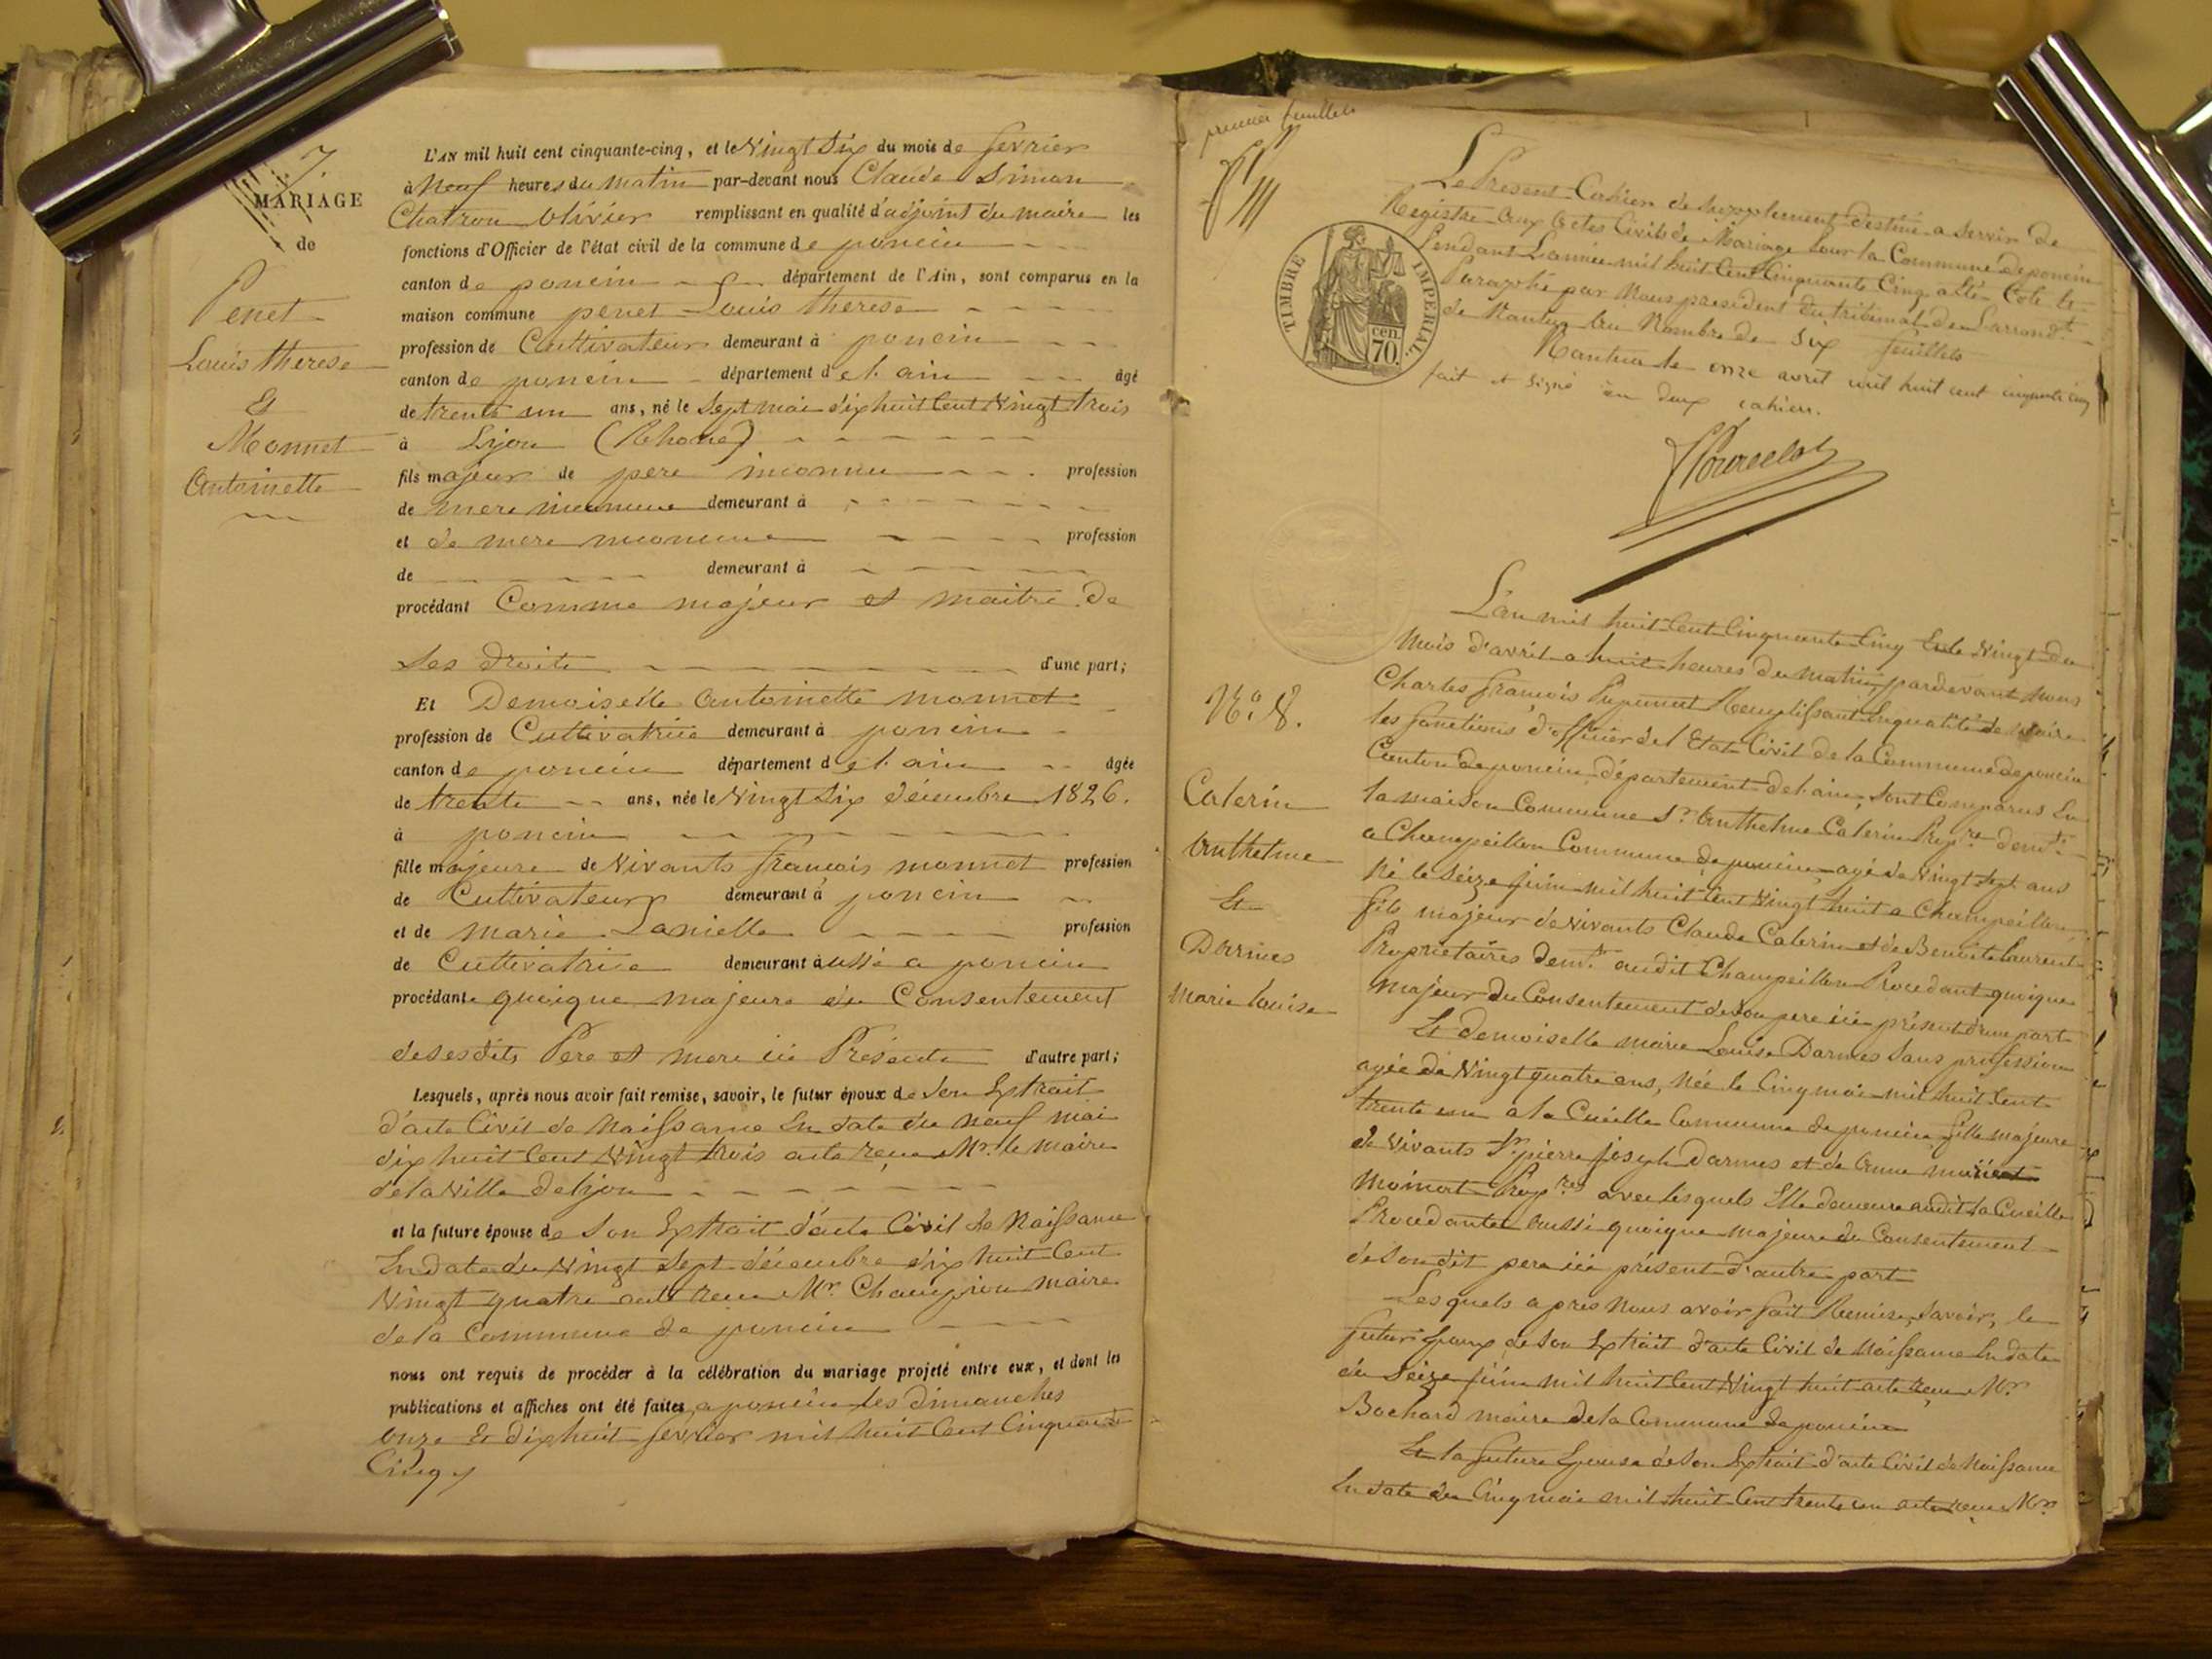 7
MARIAGE
de
Penet
Louis therese
Et
Monnet
Antoinette
L'AN mil huit cent cinquante-cinq, et le Vingt Six du mois de fevrier
à Neuf heures du matin par-devant nous Claude Simon
Chatron Olivier remplissant en qualité d'adjoint du maire les
fonctions d'Officier de l'état civil de la commune de poncin
canton de poncin département de l'Ain, sont comparus en la
maison commune penet Louis therese
profession de Cultivateur demeurant à poncin
canton de poncin département de l'ain âgé
de trente un ans, né le Sept mai dix huit Cent Vingt trois
à Lyon (Rhone)
fils majeur de pere inconnu profession
de mere inconnue demeurant à
et de mere inconnue profession
de demeurant à
procédant Comme majeur et maitre de
Ses droits d'une part;
Et Demoiselle Antoinette monnet
profession de Cultivatrice demeurant à poncin
canton de poncin département de l'ain âgée
de trente ans, née le Vingt Six décembre 1826.
à poncin
fille majeure de Vivants francois monnet profession
de Cultivateur demeurant à poncin
et de marie Lanielle profession
de Cultivatrice demeurant à ussi a poncin
procédante quoique majeure du Consentement
de ses dits Pere et mere ici Présents d'autre part;
Lesquels, après nous avoir fait remise, savoir, le futur époux de Son Extrait
d'acte Civil de Naissance En date du Neuf mai
dix huit Cent Vingt trois acte reçu Mr. le maire
de la Ville de Lyon
et la future épouse de Son Extrait d'acte Civil de Naissance
En date du Vingt Sept décembre dix huit Cent
Vingt quatre acte recu Mr. Champion maire
de la Commune de poncin
nous ont requis de procéder à la célébration du mariage projeté entre eux, et dont les
publications et affiches ont été faites a poncin les dimanches
onze Et dix huit fevrier mil huit Cent Cinquante
Cinq
premier feuillet
Le Present Cahier de Supplement destiné a Servir de
Registre Aux Actes Civils de Mariage Pour la Commune de poncin
Pendant L'année mil huit Cent Cinquante Cinq a été Coté et
Paraphé par Nous president du tribunal de L'arrondt.
de Nantua Au Nombre de Six feuillets
Nantua le onze avril mil huit cent cinquante cinq
fait et signé en deux cahiers.
TIMBRE IMPERIAL.
70 cen.
No. 8.
Caterin
Anthelme
Et
Darmes
Marie Louise
L'an mil huit Cent Cinquante Cinq Et le Vingt du
Mois d'avril a huit heures du Matin, pardevant Nous
Charles françois Remplissant En qualité de Maire
les fonctions d'officier de l'Etat Civil de la Commune de poncin
Canton de poncin département de l'ain, Sont Comparus En
la maison Commune Sr. Anthelme Caterin Propre. demt.
a Champeillon Commune de poncin agé de Vingt Sept ans
Né le Seize juin mil huit Cent Vingt huit a Champeillon,
fils majeur de Vivants Claude Caterin et de Benoite Laurent
Proprietaires demt. audit Champeillon Procedant quoique
Majeur du Consentement de Son pere ici présent d'une part
Et demoiselle marie Louise Darmes Sans profession
agée de Vingt quatre ans, Née le Cinq mai mil huit Cent
trente un a la Cueille Commune de poncin, fille majeure
de Vivants Sr. pierre joseph Darmes et de Anne
Moinat Propres. avec lesquels Elle demeure audit La Cueille
Procedante aussi quoique majeure du Consentement
de Son dit pere ici présent d'autre part
Lesquels apres Nous avoir fait Remise, Savoir, le
futur Epoux de Son Extrait d'acte Civil de Naissance En date
du Seize juin mil huit Cent Vingt huit acte reçu Mr.
Bochard maire de la Commune de poncin
Et la future Epouse de Son Extrait d'acte Civil de Naissance
En date du Cinq mai mil huit Cent trente un acte reçu Mr.